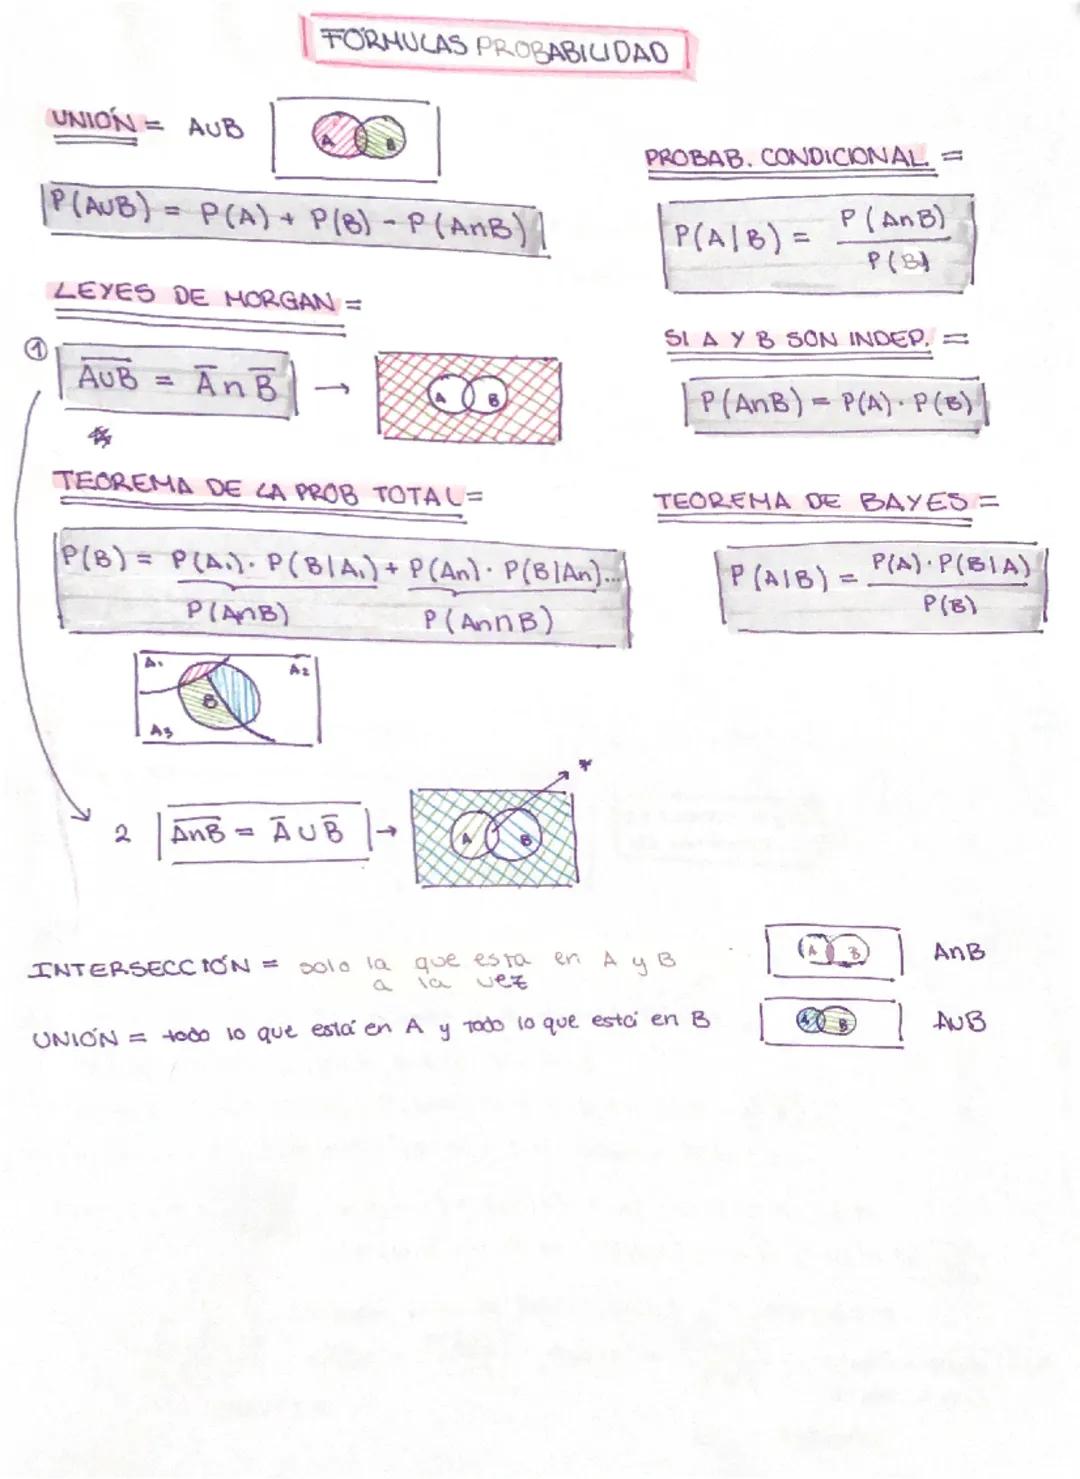 FÓRMULAS PROBABILIDAD
UNIÓN = AUB
A B
P(AUB) = P(A) + P(B) - P(A∩B)
LEYES DE MORGAN =
1
A̅U̅B̅ = A̅ ∩ B̅ →
A B
*
TEOREMA DE LA PROB TOTAL =
P(B) = P(A₁) · P(B|A₁) + P(An) · P(B|An)...
P(A∩B) P(An∩B)
A₁ A₂
B
A₃
2 A̅∩̅B̅ = A̅ U B̅ →
A B
*
PROBAB. CONDICIONAL =
P(A|B) = P(A∩B)
P(B)
SI A Y B SON INDEP. =
P(A∩B) = P(A) · P(B)
TEOREMA DE BAYES =
P(A|B) = P(A) · P(B|A)
P(B)
INTERSECCIÓN = solo la que esta en A y B
a la vez
A B A∩B
UNIÓN = todo lo que está en A y Todo lo que está en B
A B AUB